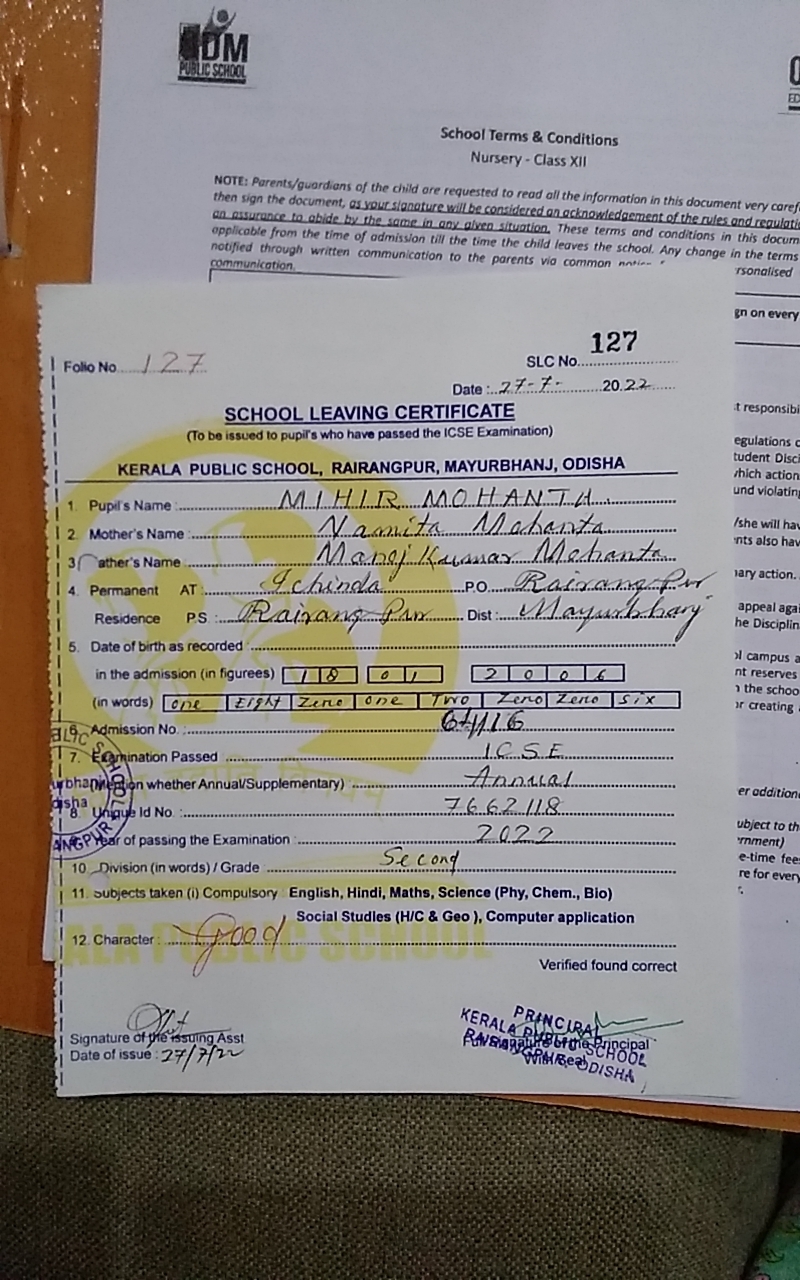 DM
PUBLIC SCHOOL
School Terms & Conditions
Nursery - Class XII
NOTE: Parents/guardians of the child are requested to read all the information in this document very
then sign the document, as your signature will be considered an acknowledgement of the rules and
an assurance to abide by the same in any given situation. These terms and conditions in this
applicable from the time of admission till the time the child leaves the school. Any change in the terms
notified through written communication to the parents via common
communication.
Folio No. 127
SLC No. 127
Date : 27-7- 2022
SCHOOL LEAVING CERTIFICATE
(To be issued to pupil's who have passed the ICSE Examination)
KERALA PUBLIC SCHOOL, RAIRANGPUR, MAYURBHANJ, ODISHA
1. Pupil's Name : MIHIR MOHANTA
2. Mother's Name : Namita Mohanta
3. Father's Name Manoj Kumar Mohanta
4. Permanent AT : Ichinda P.O. Rairang Pur
Residence P.S. : Rairang Pur Dist : Mayurbhanj
5. Date of birth as recorded
in the admission (in figurees) 18 01 2006
(in words) one Eight Zero one Two Zero Zero six
6. Admission No. : 64/16
7. Examination Passed ICSE
(Mention whether Annual/Supplementary) Annual
8. Unique Id No. : 7662118
9. Year of passing the Examination : 2022
10. Division (in words) / Grade Second
11. Subjects taken (i) Compulsory English, Hindi, Maths, Science (Phy, Chem., Bio)
Social Studies (H/C & Geo ), Computer application
12. Character : Good
Verified found correct
Signature of the issuing Asst
Date of issue : 27/7/22
PRINCIPAL
KERALA PUBLIC SCHOOL
RAIRANGPUR, ODISHA
Full signature of the Principal
With Seal